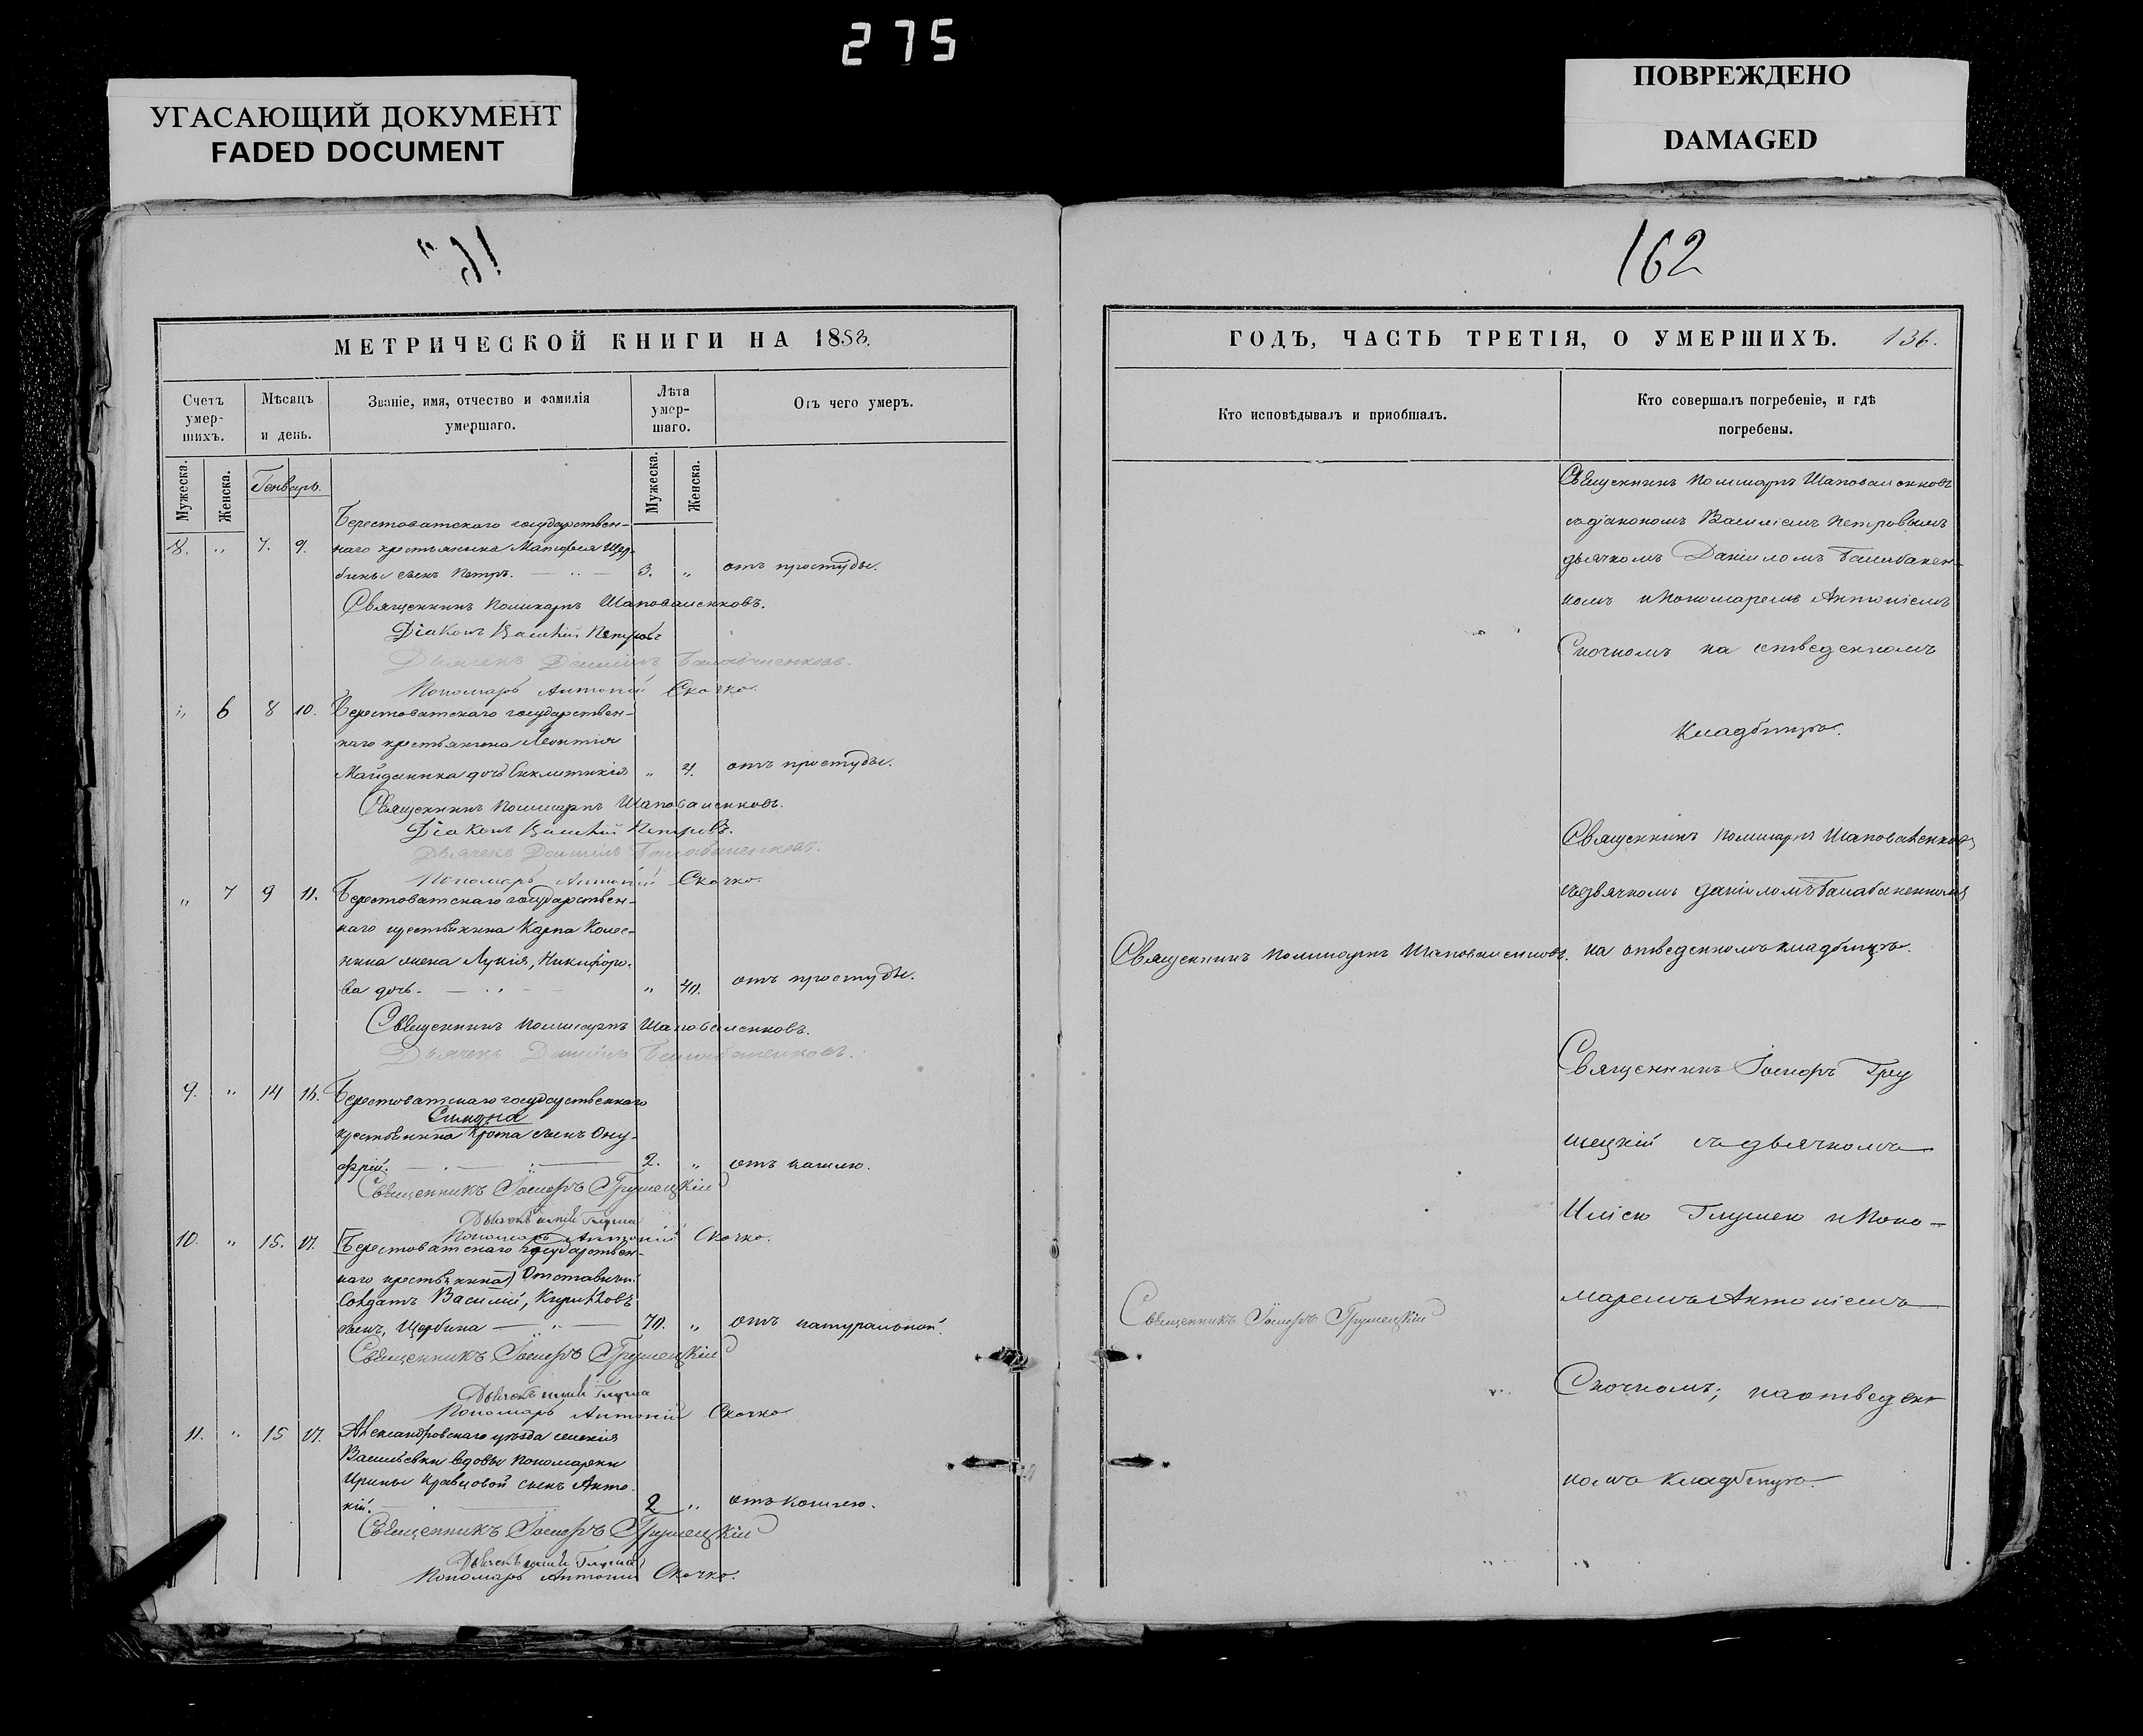 275
УГАСАЮЩИЙ ДОКУМЕНТ
FADED DOCUMENT
ПОВРЕЖДЕНО
DAMAGED
162
МЕТРИЧЕСКОЙ КНИГИ НА 1853.
Счетъ умер-шихъ.
Мѣсяцъ и день.
Званіе, имя, отчество и фамилія умершаго.
Лѣта умер-шаго.
Отъ чего умеръ.
Мужеска.
Женска.
Генварь.
Мужеска.
Женска.
Берестоватскаго государствен-
8. „ 7. 9. наго крестьянина Матфея Щер-
бины сынъ Петръ. 3. „ отъ простуды.
Священникъ Поликарпъ Шаповаленковъ.
Діаконъ Василій Петровъ
Дьячекъ Даніилъ Балабаненковъ.
Пономарь Антоній Скочко.
„ 6 8 10. Берестоватскаго государствен-
наго крестьянина Леонтія
Майданника дочь Синклитикія „ 4. отъ простуды.
Священникъ Поликарпъ Шаповаленковъ.
Діаконъ Василій Петровъ.
Дьячекъ Даніилъ Балабаненковъ.
Пономарь Антоній Скочко.
„ 7 9 11. Берестоватскаго государствен-
наго крестьянина Карпа Колес-
ника жена Лукія, Никифоро-
ва дочь. „ 40. отъ простуды.
Священникъ Поликарпъ Шаповаленковъ.
Дьячекъ Даніилъ Балабаненковъ.
9. „ 14 16. Берестоватскаго государственнаго
Симона
крестьянина Крота сынъ Ону-
фрій. 2. „ отъ кашлю.
Священникъ Іосифъ Грушецкій
Дьячокъ Глуша
Пономарь Антоній Скочко.
10. „ 15. 17. (Берестоватскаго государствен-
наго крестьянина) Отставный
Солдатъ Василій, Кириловъ
сынъ, Щербина 70. „ отъ натуральной.
Священникъ Іосифъ Грушецкій
Дьячокъ Глуша
Пономарь Антоній Скочко
11. „ 15 17. Александровскаго уѣзда селенія
Васильевки вдовы пономарки
Ирины Кравцовой сынъ Анто-
ній. 2 „ отъ кашлю.
Священникъ Іосифъ Грушецкій
Дьячокъ Глуша
Пономарь Антоній Скочко.
ГОДЪ, ЧАСТЬ ТРЕТІЯ, О УМЕРШИХЪ. 136.
Кто исповѣдывалъ и пріобщалъ.
Кто совершалъ погребеніе, и гдѣ погребены.
Священникъ Поликарпъ Шаповаленковъ
съ діакономъ Василіемъ Петровымъ
дьячкомъ Даніиломъ Балабанен-
комъ и Пономаремъ Антоніемъ
Скочкомъ на отведенномъ
Кладбищѣ.
Священникъ Поликарпъ Шаповаленковъ
съ дьячкомъ Даніиломъ Балабаненкомъ
Священникъ Поликарпъ Шаповаленковъ. на отведенномъ кладбищѣ.
Священникъ Іосифъ Гру
шецкій съ дьячкомъ
Иліею Глушею и Поно-
маремъ Антоніемъ
Священникъ Іосифъ Грушецкій
Скочкомъ; на отведен
номъ кладбищѣ.